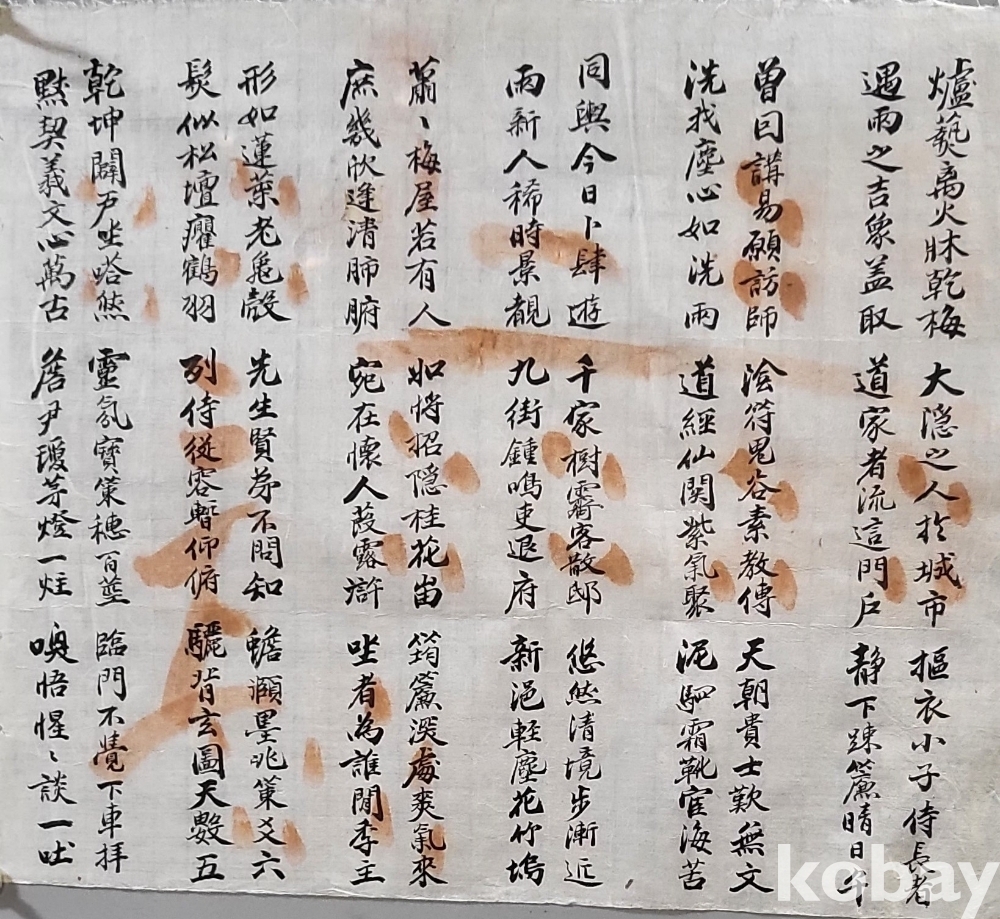 爐爇离火牀乾梅 大隐之人於城市 摳衣小子侍長者
遇雨之吉象盖取 道家者流這門戶 静下踈簾晴日午
曾因講易願訪師 陰符鬼谷素教傳 天朝貴士歎無文
洗我塵心如洗雨 道經仙関紫氣聚 泥駟霜靴宦海苦
同輿今日卜肆遊 千家樹霽客散邸 悠然清境步漸近
雨新人稀時景覩 九街鍾鳴吏退府 新浥軽塵花竹塢
蕭〻梅屋若有人 如將招隐桂花畄 筠簾深處爽氣來
庶幾欣逢清肺腑 宛在懷人葭露滸 坐者為誰閒季主
形如蓮葉老龜殼 先生賢否不問知 蟾灝墨兆策爻六
髮似松壇癯鶴羽 列侍從容暫仰俯 驪背玄圖天數五
乾坤闢戶坐嗒然 靈氛寶策穗百莖 臨門不覺下車拜
黙契義文心萬古 詹尹瓊茅燈一炷 喚悟惺〻談一吐
kobay